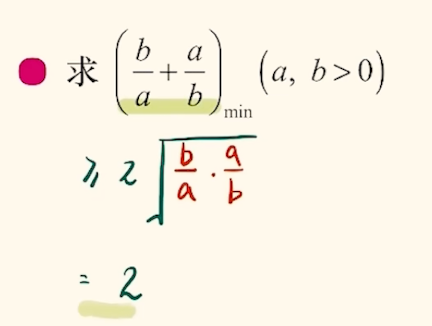 求 (b/a + a/b)min (a, b>0)
≥ 2√(b/a · a/b)
= 2